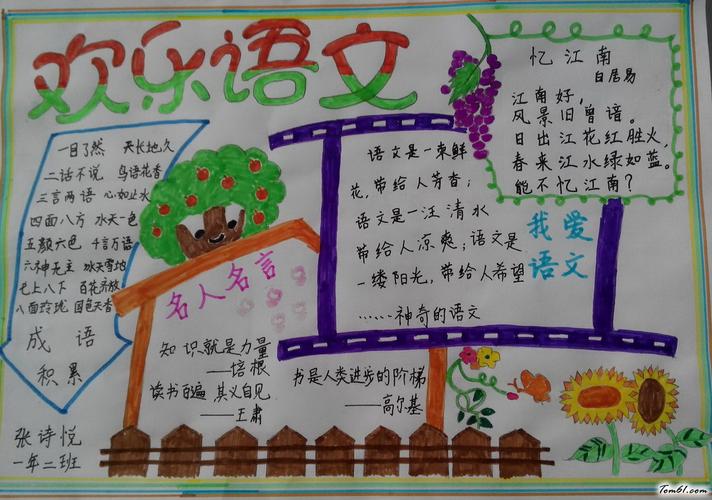 欢乐语文
一目了然 天长地久
二话不说 鸟语花香
三言两语 心如止水
四面八方 水天一色
五颜六色 千言万语
六神无主 冰天雪地
七上八下 百花齐放
八面玲珑 国色天香
成语
积累
张诗悦
一年二班
名人名言
知识就是力量
——培根
读书百遍 其义自见
——王肃
书是人类进步的阶梯
——高尔基
语文是一束鲜
花,带给人芳香;
语文是一汪清水
带给人凉爽;语文是
一缕阳光,带给人希望
……神奇的语文
我爱
语文
忆江南
白居易
江南好,
风景旧曾谙。
日出江花红胜火,
春来江水绿如蓝。
能不忆江南?
Tom61.com